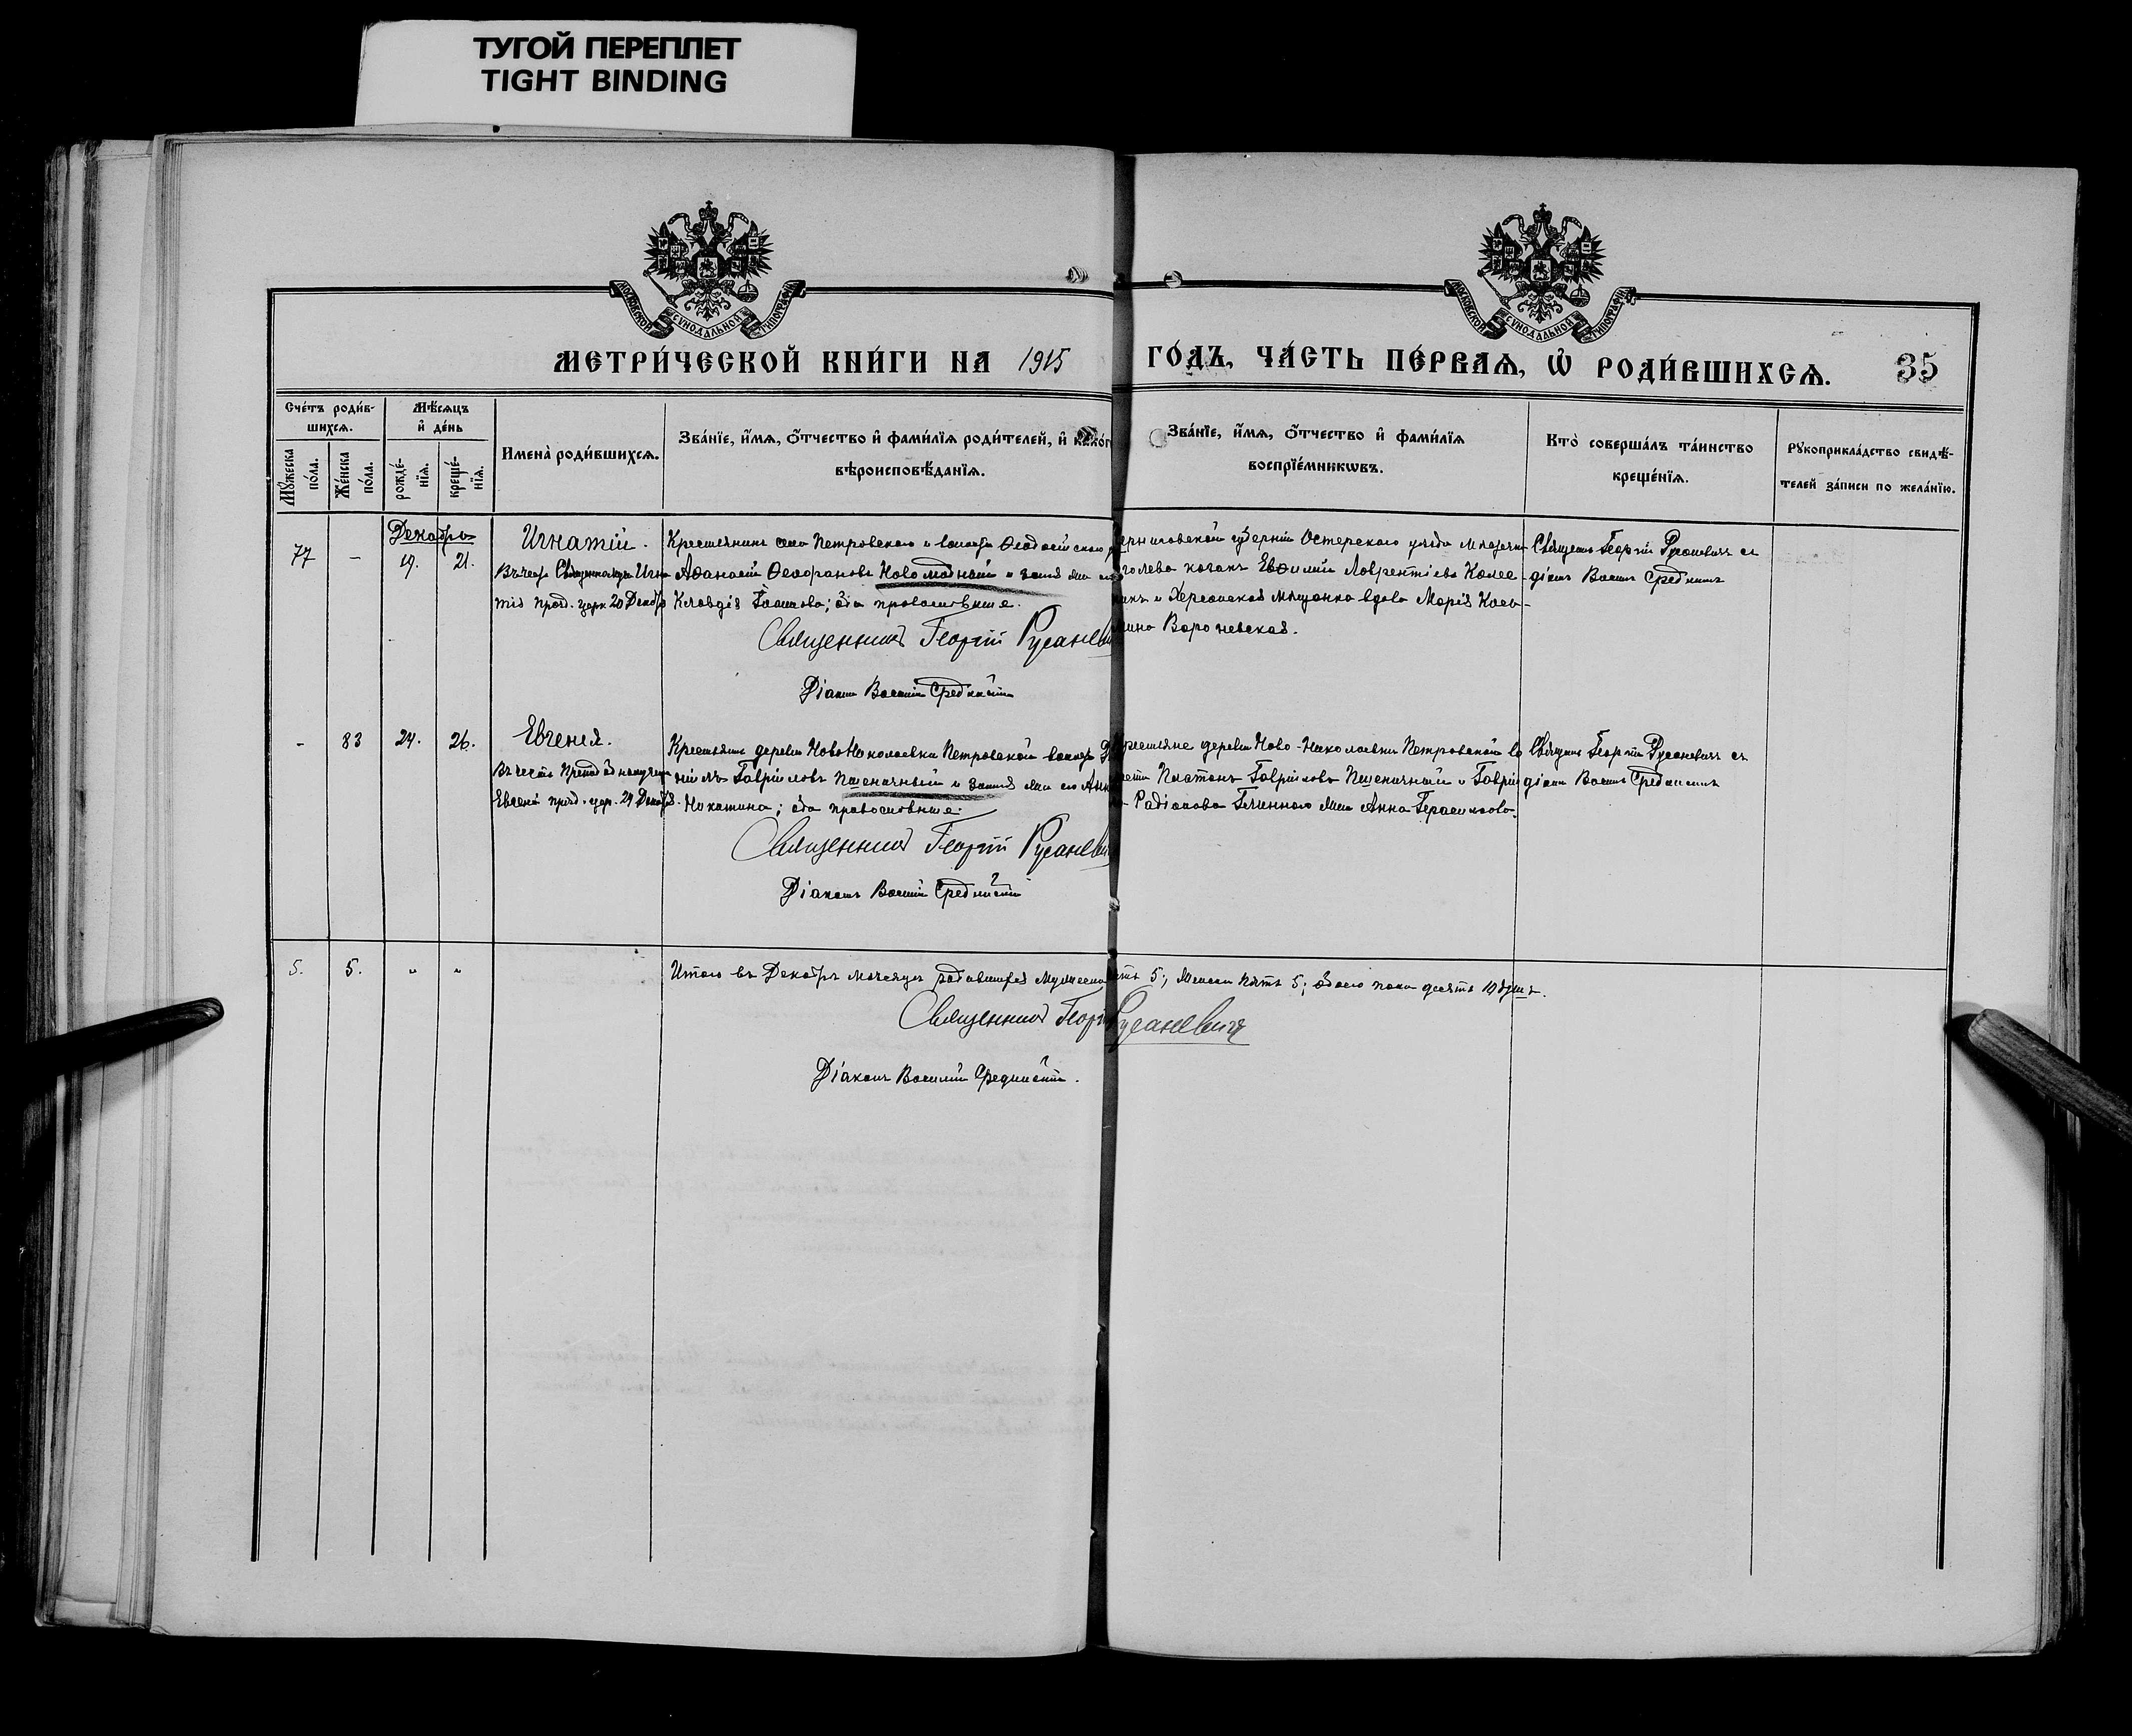 ТУГОЙ ПЕРЕПЛЕТ
TIGHT BINDING
МОСКОВСКОЙ СѴНОДАЛЬНОЙ ТИПОГРАФІИ
МОСКОВСКОЙ СѴНОДАЛЬНОЙ ТИПОГРАФІИ
МЕТРИ́ЧЕСКОЙ КНИ́ГИ НА 1915 ГО́ДЪ, ЧА́СТЬ ПЕ́РВАѦ, Ѡ РОДИ́ВШИХСѦ. 35
Сче́тъ роди́в-
шихсѧ.
Мѣ́сѧцъ
и де́нь
Мꙋ́жеска
по́ла.
Же́нска
по́ла.
рожде́-
нїѧ.
креще́-
нїѧ.
Имена̀ роди́вшихсѧ.
Зва́нїе, и́мѧ, о́тчество и фами́лїѧ роди́телей, и
вѣроисповѣ́данїѧ.
Зва́нїе, и́мѧ, о́тчество и фами́лїѧ
воспрїе́мникѡвъ.
Кто̀ соверша́лъ та́инство
креще́нїѧ.
Рꙋкоприкла́дство свидѣ́-
телей за́писи по жела́нїю.
Декабрь
77 - 19. 21. Игнатій.
Въ честь Священномуч. Игна
тія празд. церк. 20 Декабр
Крестьянинъ села Петровскаго и волости Ѳеодосій
Аѳанасій Ѳеофановъ Новомодный и зак
Клавдія; оба православные.
Священникъ Георгій Русаневи
Діаконъ Василій Срединскій
Черниговской губерніи Остерскаго уѣзда
Гоголева козакъ Евѳимій Лаврентіевъ
и Херсонская мѣщанка вдова Марія
Вороневская.
Священ. Георгій Русаневичъ съ
діак. Васил. Срединскимъ
- 83 24. 26. Евгенія.
Въ честь Препод
Евгеніи празд. церк. 24 Декабря.
Крестьянинъ деревни Ново Николаевки Петровской волости
Гавріиловъ Пшеничный и законная жена его Анна
Никитина; оба православные.
Священникъ Георгій Русаневи
Діаконъ Василій Срединскій
Крестьяне деревни Ново-Николаевки Петровской во
лости Платонъ Гавріиловъ Пшеничный и Гаврі
Радіонова жена Анна Герасимова.
Священ. Георгій Русаневичъ съ
діакон. Васил. Срединскимъ
5. 5. " "
Итого въ Декабрѣ мѣсяцѣ родившихся мужеска пять 5; женска пять 5; обоего пола десять 10 душъ.
Священникъ Георгій Русаневичъ
Діаконъ Василій Срединскій.